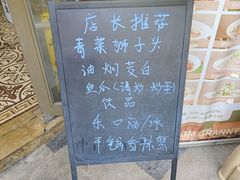 店长推荐
青菜狮子头
油焖茭白
丝瓜(清炒,炒蛋)
饮品
乐口福/冰
干锅香辣蟹
OM GRANNY